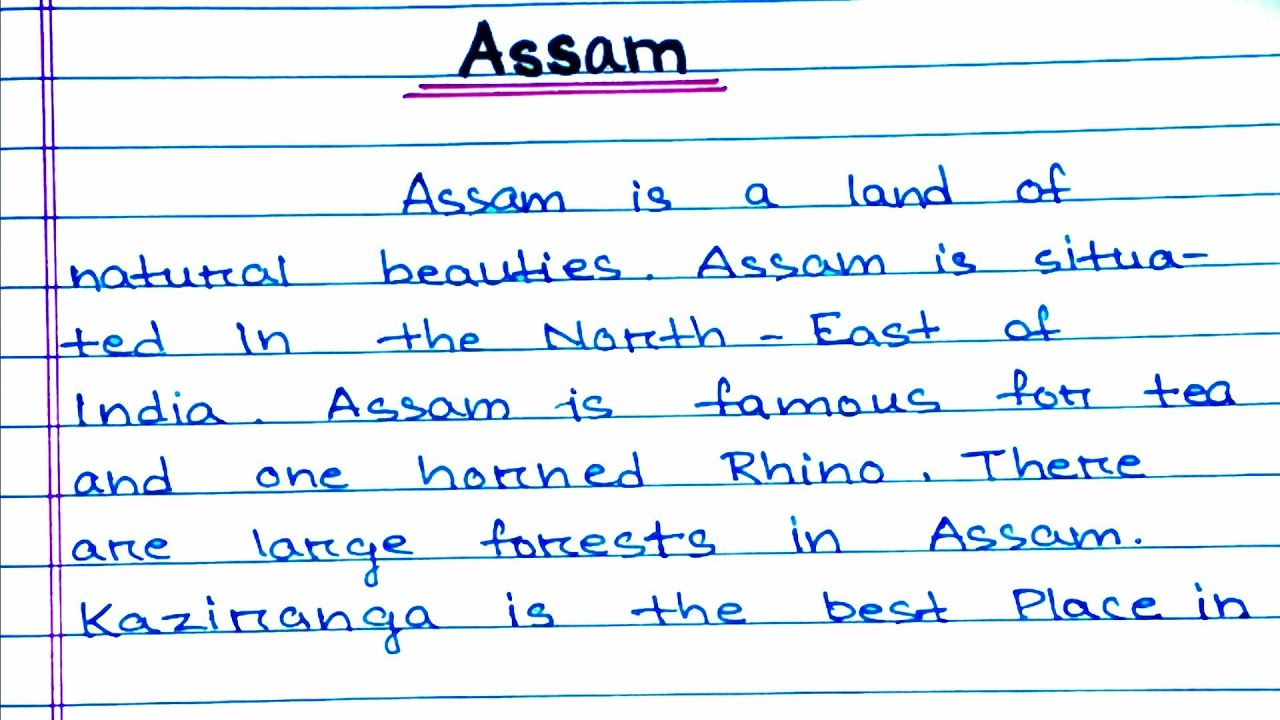 Assam
Assam is a land of
natural beauties. Assam is situa-
ted in the North - East of
India. Assam is famous for tea
and one horned Rhino. There
are large forests in Assam.
Kaziranga is the best Place in